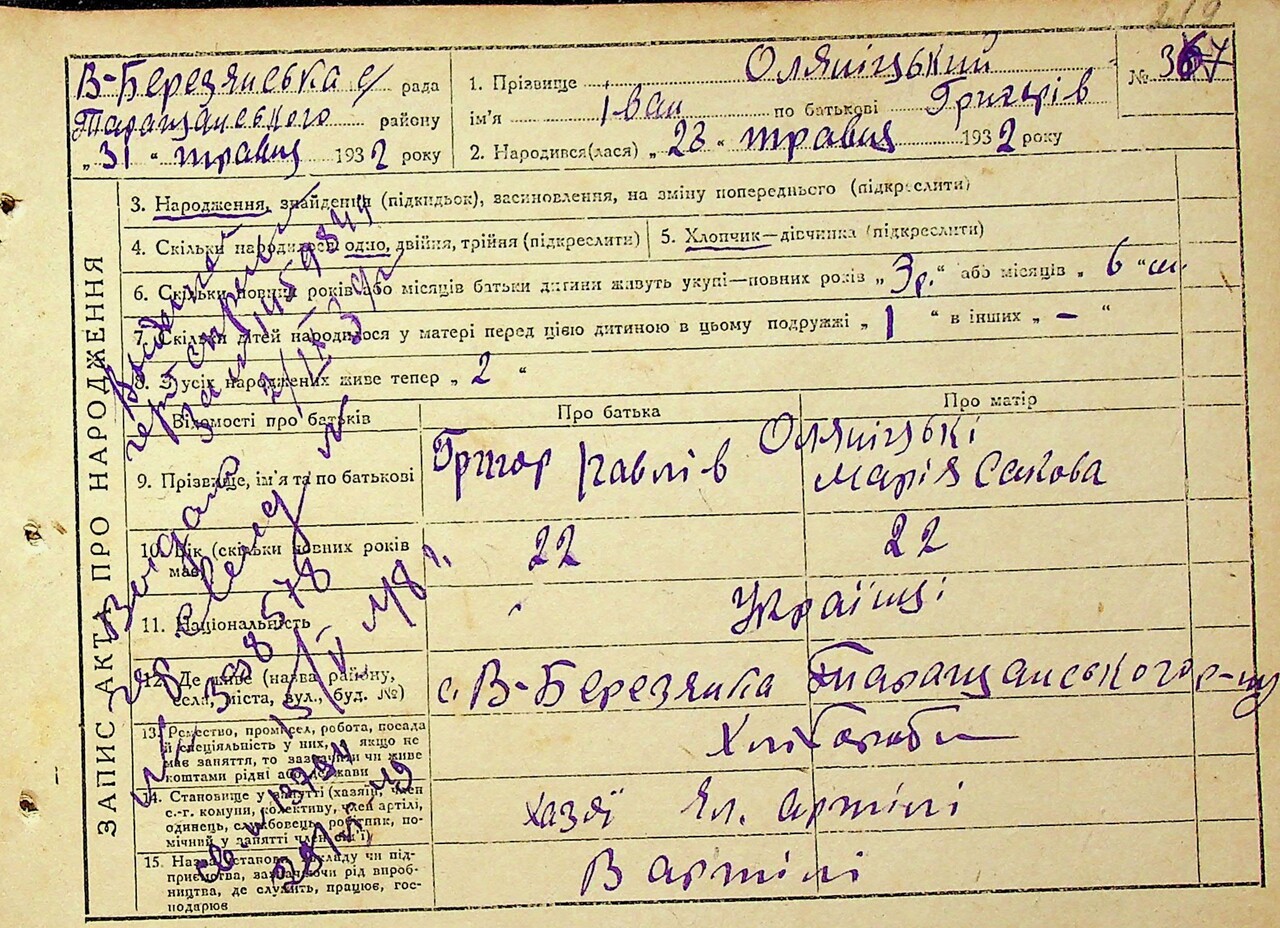 219
В-Березянська с/ рада
Таращанського району
„31“ травня 1932 року
1. Прізвище Оляніцький
ім'я Іван по батькові Григорів
2. Народився(лася) „23“ травня 1932 року
№ 367
ЗАПИС АКТА ПРО НАРОДЖЕННЯ
3. Народження, знайдення (підкидьок), засиновлення, на зміну попереднього (підкреслити)
4. Скільки народилося одно, двійня, трійня (підкреслити)
5. Хлопчик—дівчинка (підкреслити)
6. Скільки повних років або місяців батьки дитини живуть укупі—повних років „3р.“ або місяців „6“ м.
7. Скільки дітей народилося у матері перед цією дитиною в цьому подружжі „1“ в інших „–“
8. З усіх народжених живе тепер „2“
Відомості про батьків
Про батька
Про матір
9. Прізвище, ім'я та по батькові
Григор Павлів
Оляніцькі
Марія Сакова
10. Вік (скільки повних років має)
22
22
11. Національність
Українці
12. Де живе (назва району, села, міста, вул., буд. №)
с. В-Березянка Таращанського р-ну
13. Ремество, промисел, робота, посада й спеціяльність у них, а якщо не має заняття, то зазначити чи живе коштами рідні або держави
Хлібороби
14. Становище у занятті (хазяїн, член с.-г. комуни, колективу, член артілі, одинець, службовець, робітник, помічний у занятті член сім'ї)
хазяї чл. артілі
15. Назва установи, закладу чи підприємства, зазначаючи рід виробництва, де служить, працює, господарює
В артілі